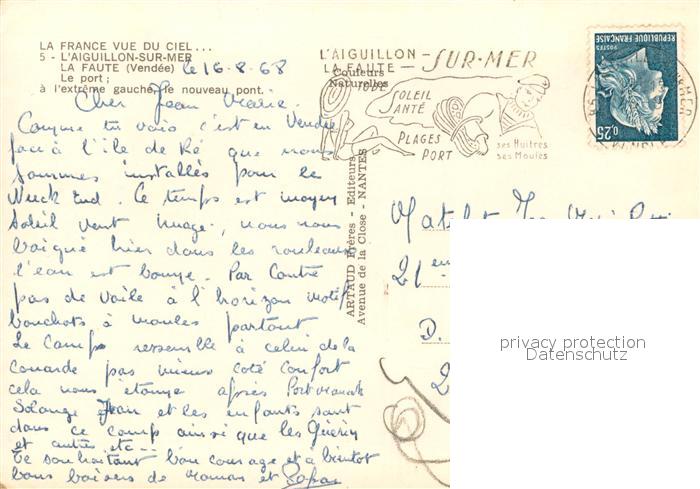 LA FRANCE VUE DU CIEL...
5 - L'AIGUILLON-SUR-MER
LA FAUTE (Vendée)
Le port ;
à l'extrême gauche, le nouveau pont.
le 16-8-68
Cher Jean Marie.
Comme tu vois c'est en Vendée
face à l'ile de Ré que nous
sommes installés pour le
Week End. Ce temps est moyen
soleil vent nuage, nous nous
baigné hier dans les rouleaux
l'eau est bonne. Par Contre
pas de voile à l'horizon motif
bouchots à moules partout
Le Camps ressemble à celui de la
couarde pas mieux coté confort
cela nous étonne après Port
Solange Jean et les enfants sont
dans ce camp ainsi que les Guérin
et autres etc...
Te souhaitant bon courage et à bientôt
bons baisers de maman et Papa
L'AIGUILLON - SUR-MER
LA FAUTE
Couleurs
Naturelles
IODE
SOLEIL
SANTÉ
PLAGES
PORT
ses Huîtres
ses Moules
POSTES
RÉPUBLIQUE FRANÇAISE
0,25
ARTAUD Frères - Editeurs
Avenue de la Close - NANTES
Matelot
21
D.
2
privacy protection
Datenschutz